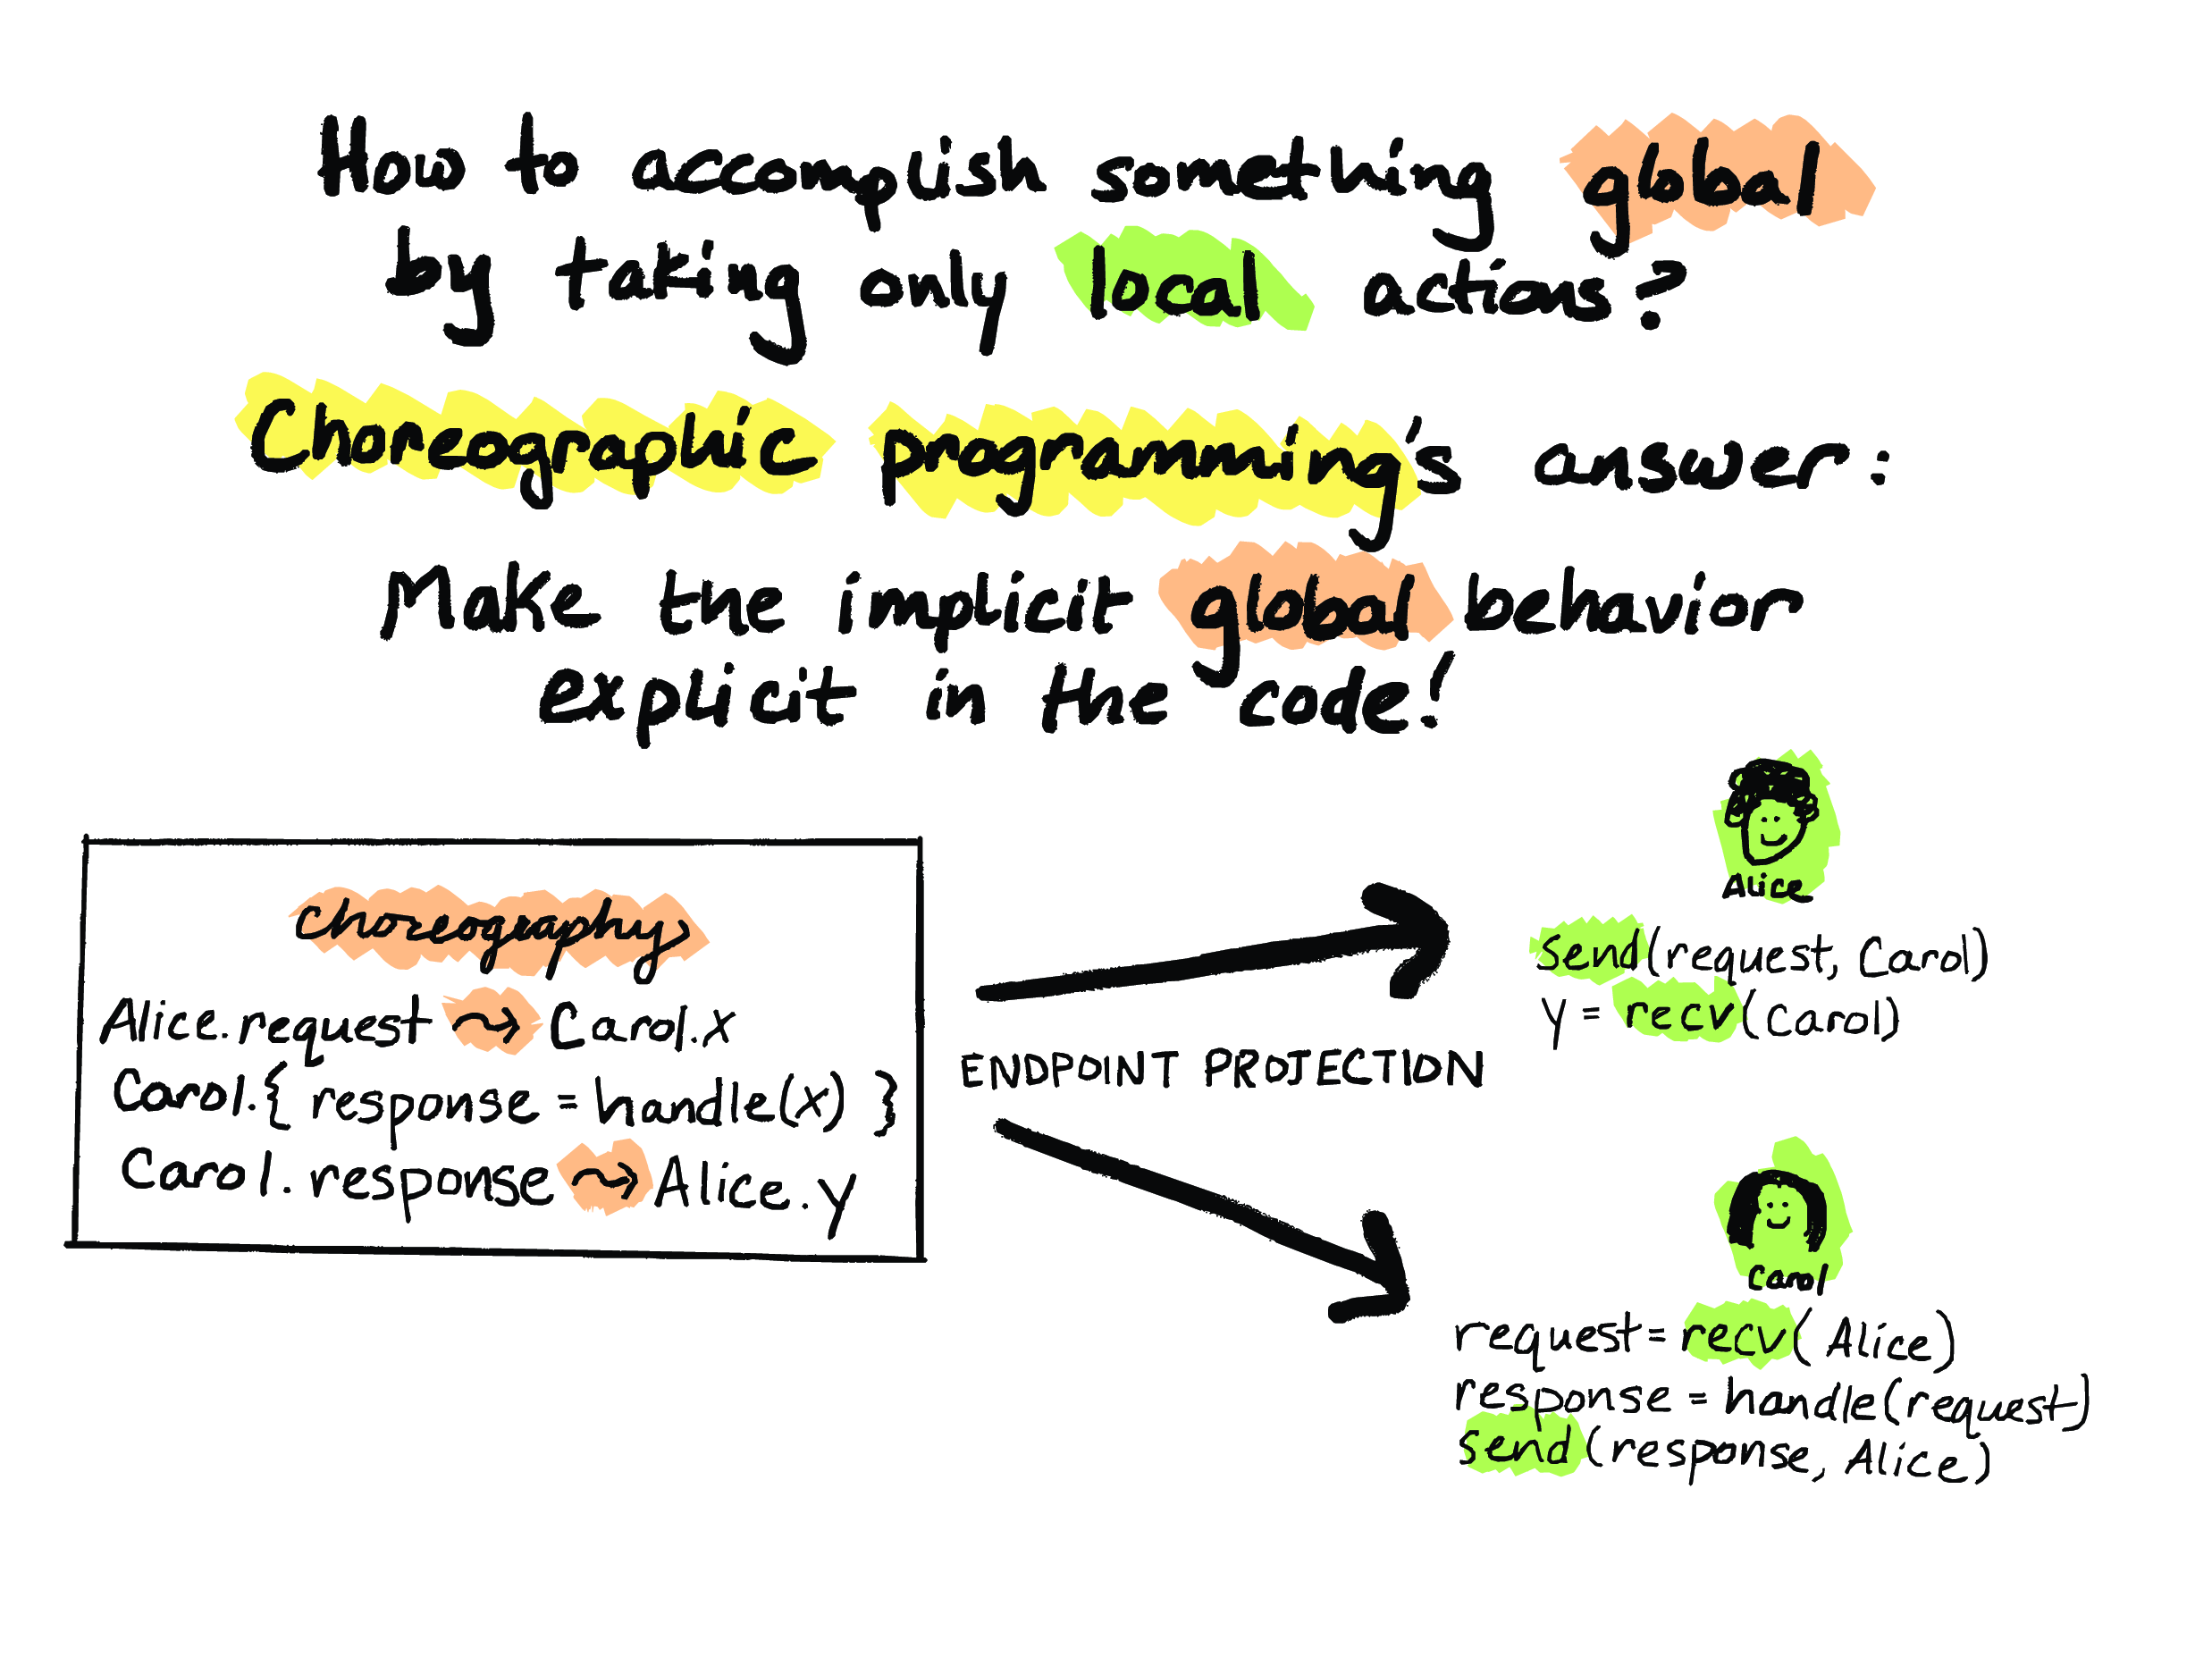 How to accomplish something global
by taking only local actions?
Choreographic programming's answer:
Make the implicit global behavior
explicit in the code!
choreography
Alice.request ⤳ Carol.x
Carol.{ response = handle(x) }
Carol.response ⤳ Alice.y
ENDPOINT PROJECTION
Alice
send(request, Carol)
y = recv(Carol)
Carol
request = recv(Alice)
response = handle(request)
send(response, Alice)